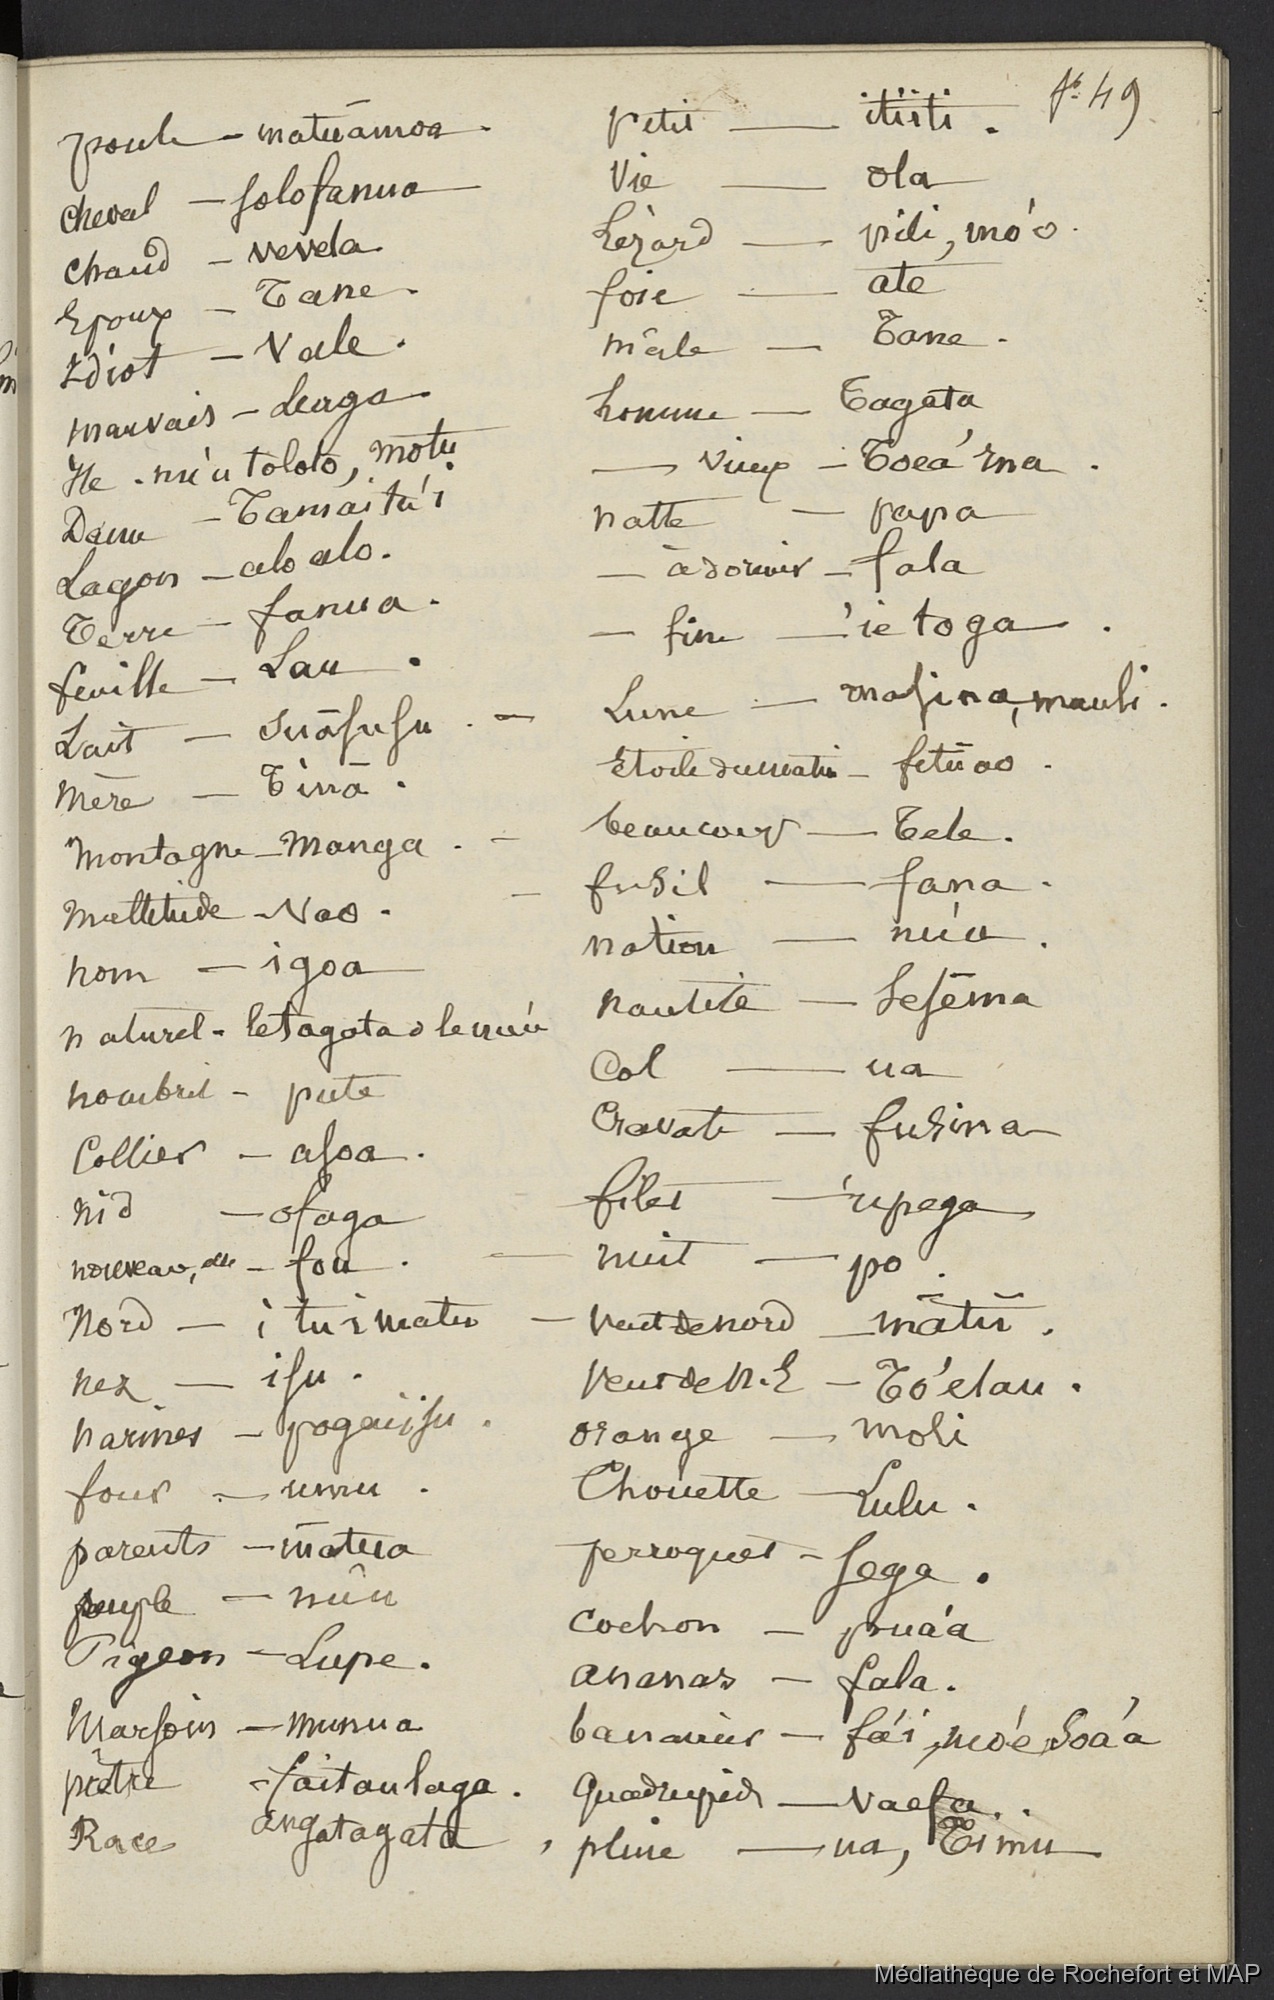 fo 49
poule - matuāmoa.
cheval - solofanua
chaud - vevela
Epoux - Tane.
Idiot - Vale.
mauvais - leaga
Ile - nu'u toloto, motu
Dame - Tamaitu'i
Lagon - alo alo.
Terre - fanua.
feuille - Lau.
Lait - suāsusu. -
Mère - Tinā.
Montagne - Manga. -
Multitude - Vao. -
nom - igoa
naturel - letagata o le nuú
nombril - pute
Collier - asoa.
Nid - ofaga
nouveau, elle - fou. -
Nord - i tu i matu -
nez - isu.
narines - pogaiisu.
four - umu.
parents - mātua
peuple - nuu
Pigeon - Lupe.
Marsouin - Munua
prêtre - faitaulaga.
Races angatagata,
petit - itiiti.
Vie - ola
Lézard - pili, mo'o.
foie - ate
mâle - Tane.
homme - Tagata
- vieux - Toeá'ina.
natte - papa
- à dormir - fala
- fine - 'ie toga.
Lune - masina, mauli.
Etoile du matin - fetūao.
beaucoup - Tele.
fusil - fana.
nation - nuú.
nautile - Sesēma
Col - ua
Cravate - fusiua
filet - 'upega
nuit - po.
Vent de nord - mātū.
Vent de N.E - To'elau.
orange - moli
Chouette - Lulu.
perroquet - Sega.
Cochon - puaá
ananas - fala.
bananier - fa'i, mo'e, Soa'a
Quadrupède - vaefa..
pluie - ua, Timu
Médiathèque de Rochefort et MAP